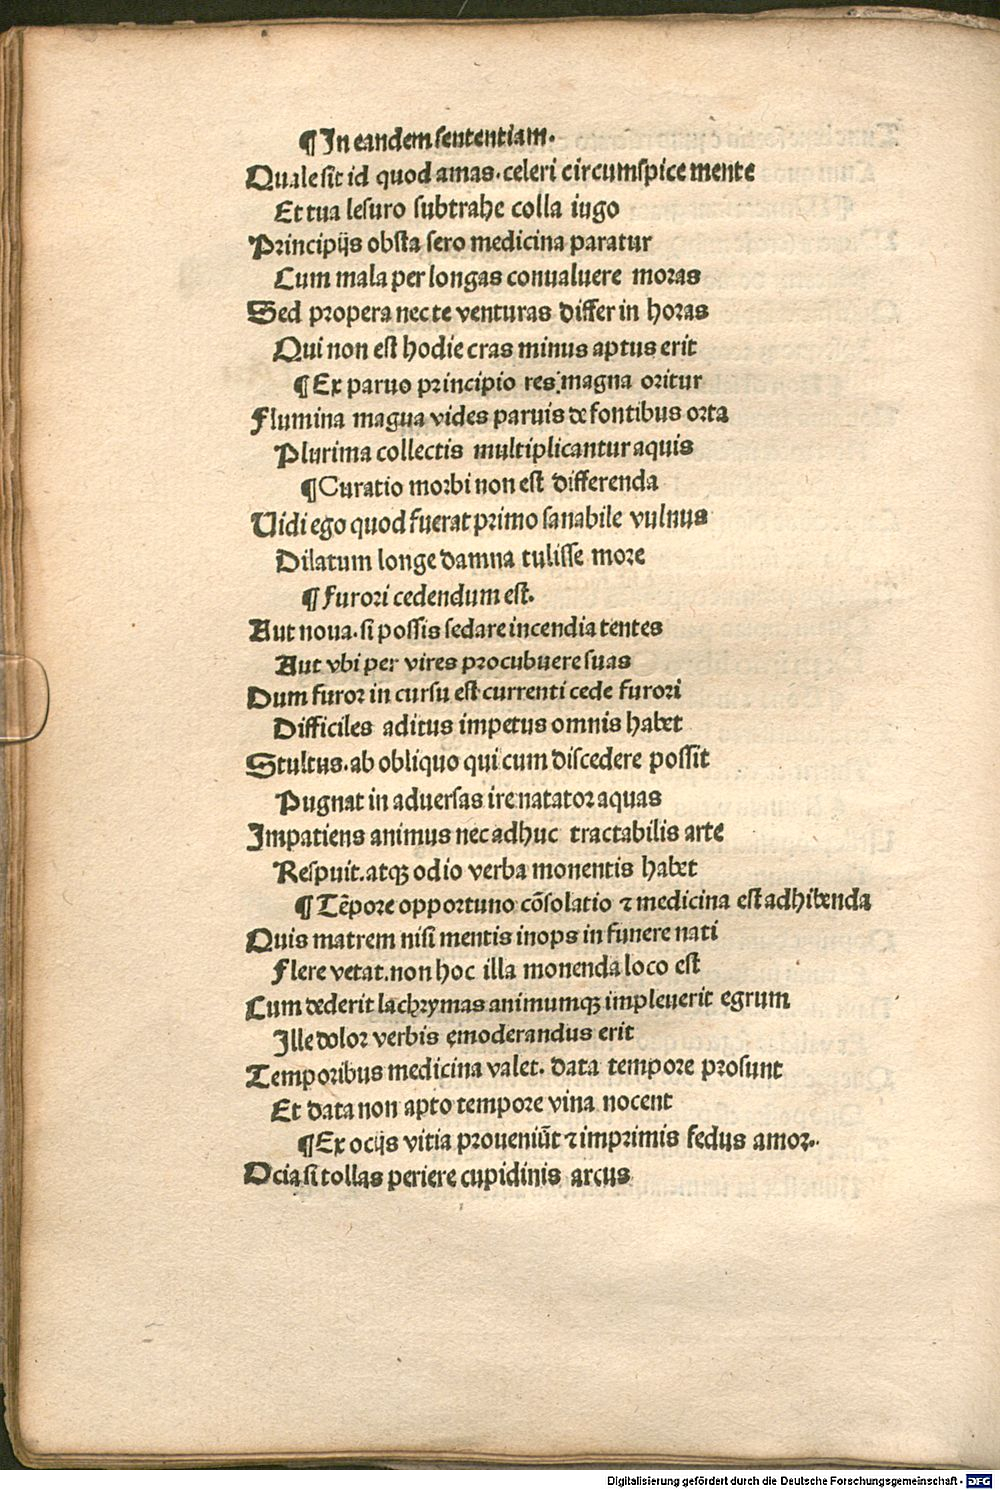 ¶ In eandem sententiam.
Quale sit id quod amas. celeri circumspice mente
Et tua lesuro subtrahe colla iugo
Principijs obsta sero medicina paratur
Cum mala per longas conualuere moras
Sed propera nec te venturas differ in horas
Qui non est hodie cras minus aptus erit
¶ Ex paruo principio res magna oritur
Flumina magna vides paruis de fontibus orta
Plurima collectis multiplicantur aquis
¶ Curatio morbi non est differenda
Uidi ego quod fuerat primo sanabile vulnus
Dilatum longe damna tulisse more
¶ furori cedendum est.
Aut noua. si possis sedare incendia tentes
Aut vbi per vires procubuere suas
Dum furor in cursu est currenti cede furori
Difficiles aditus impetus omnis habet
Stultus. ab obliquo qui cum discedere possit
Pugnat in aduersas ire natator aquas
Impatiens animus nec adhuc tractabilis arte
Respuit. atqꝫ odio verba monentis habet
¶ Tēpore opportuno cōsolatio ⁊ medicina est adhibenda
Quis matrem nisi mentis inops in funere nati
Flere vetat. non hoc illa monenda loco est
Cum dederit lachrymas animumqꝫ impleuerit egrum
Ille dolor verbis emoderandus erit
Temporibus medicina valet. data tempore prosunt
Et data non apto tempore vina nocent
¶ Ex ocijs vitia proueniūt ⁊ imprimis fedus amor.
Ocia si tollas periere cupidinis arcus
Digitalisierung gefördert durch die Deutsche Forschungsgemeinschaft - DFG